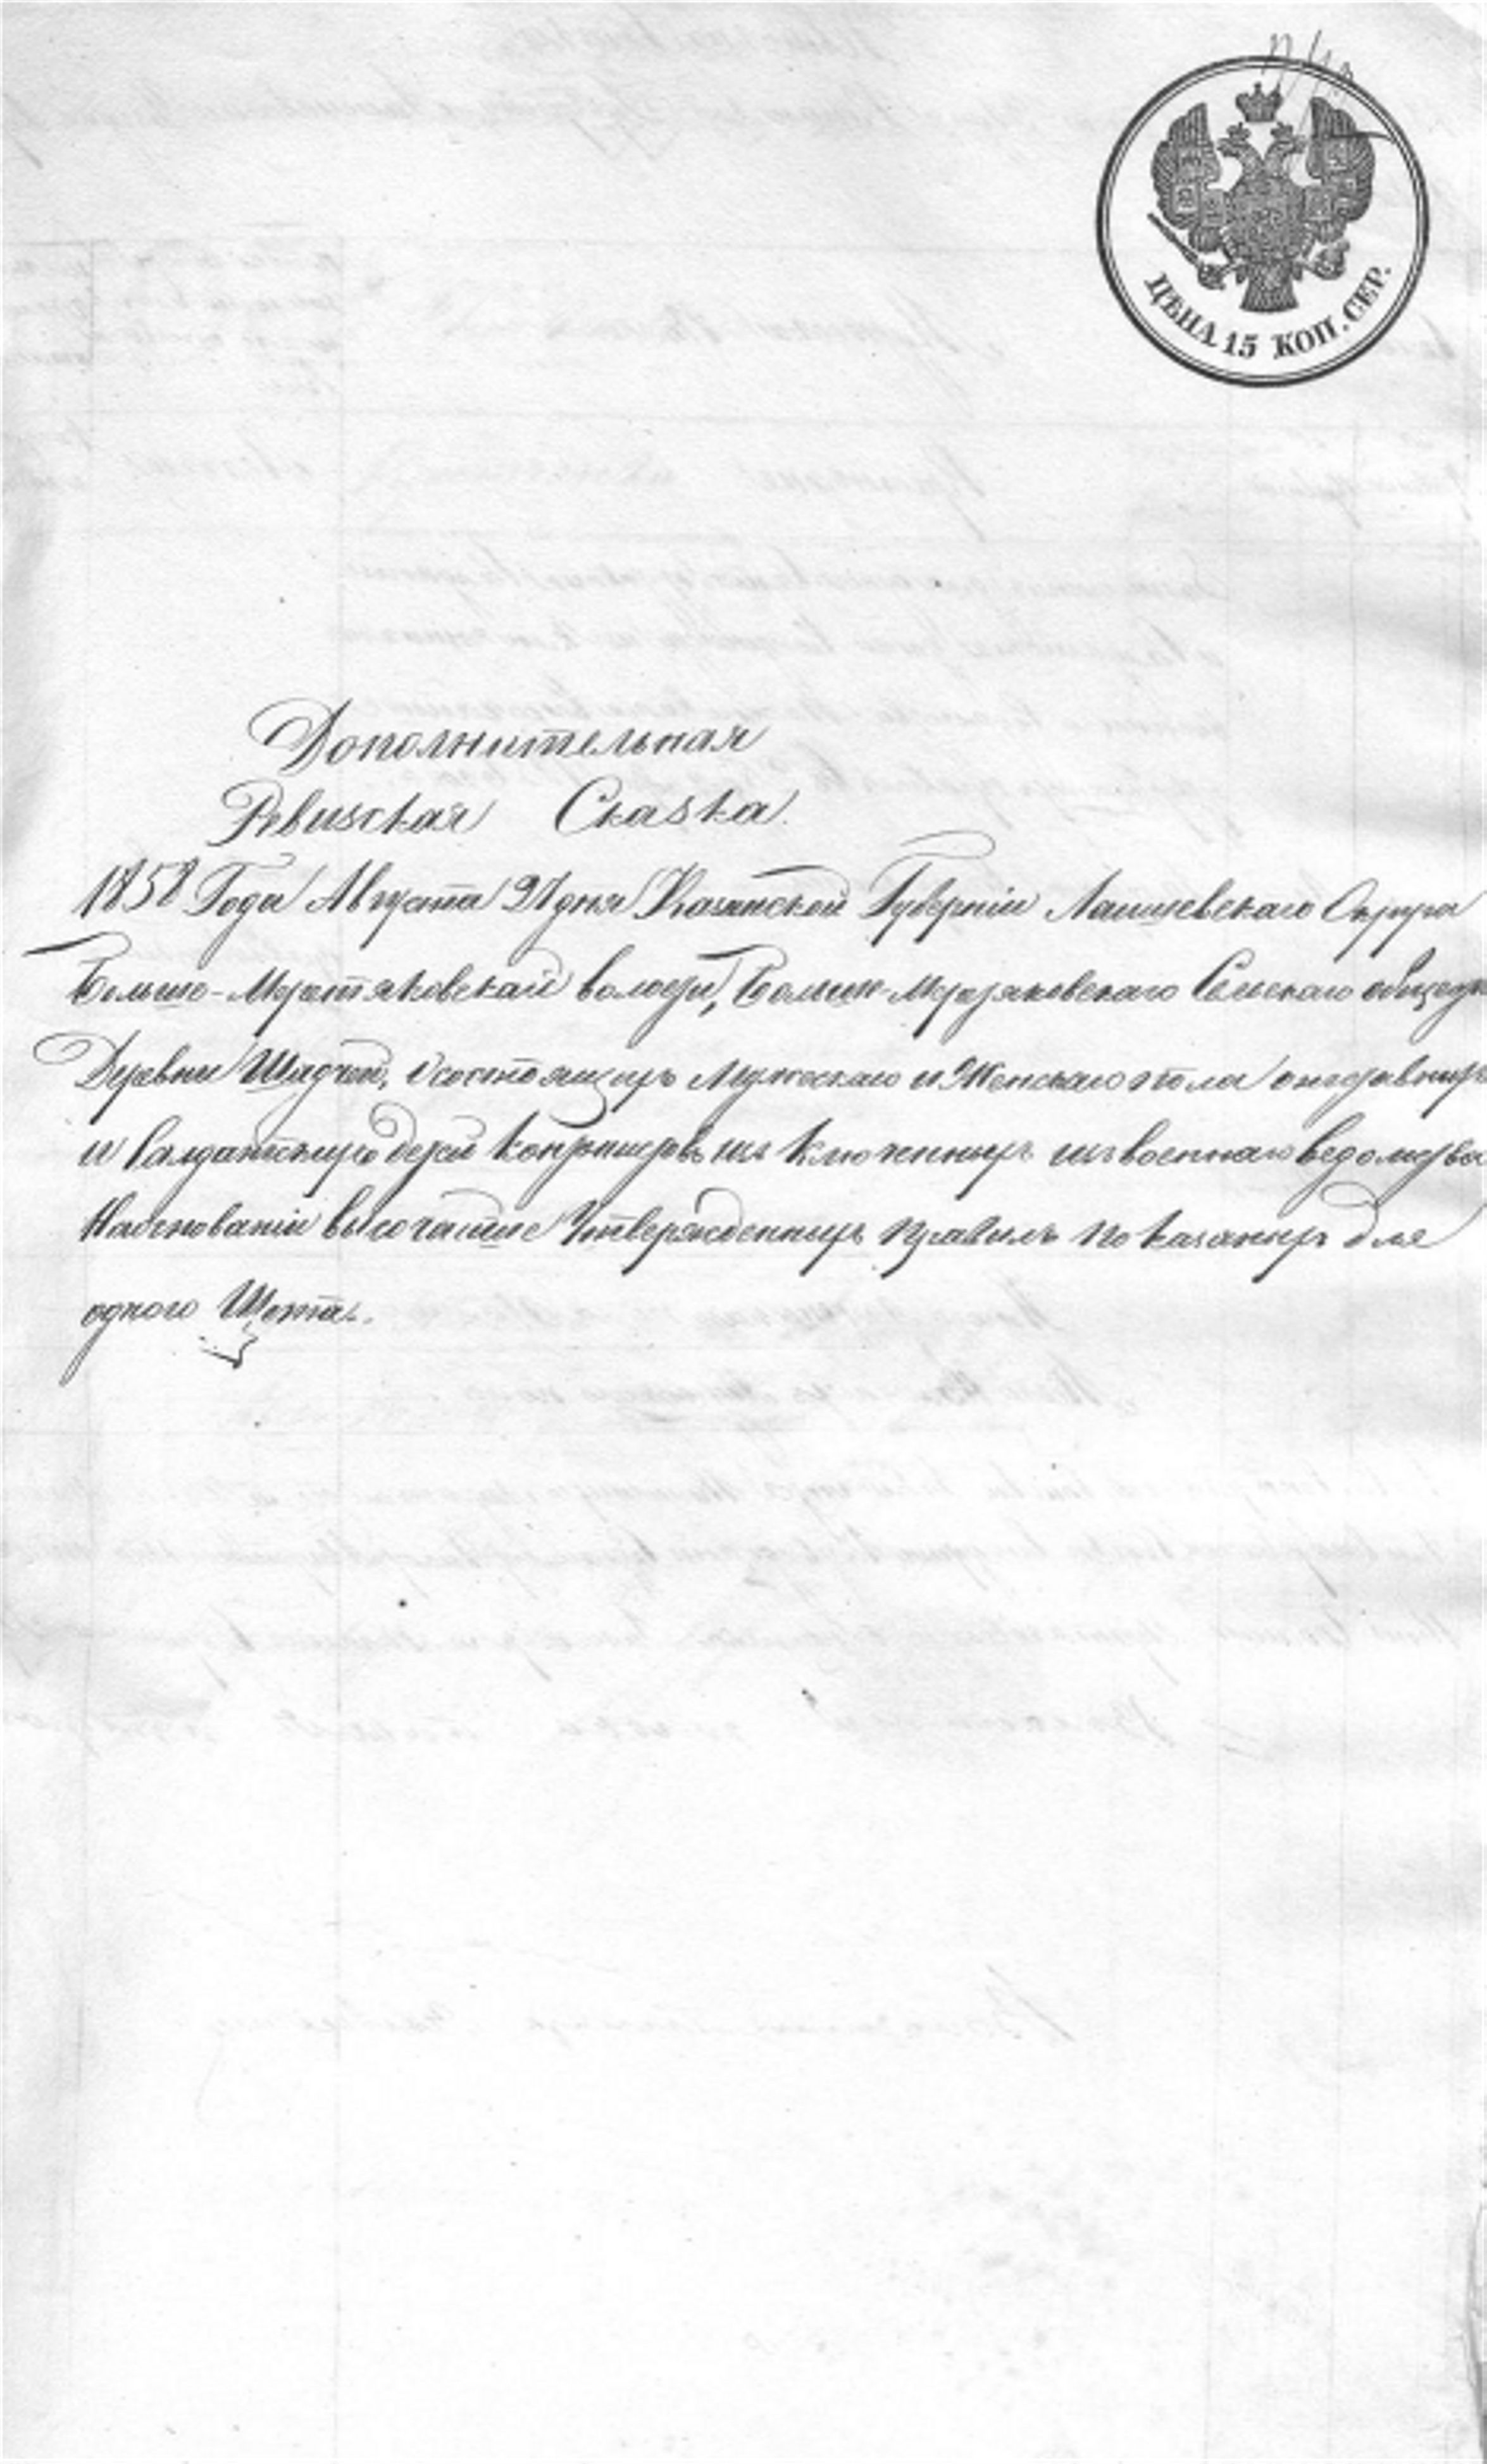 ЦѢНА 15 КОП. СЕР.
Дополнительная
Ревизская Сказка.
1858 Года Августа 27 дня Казанской Губерніи Лаишевскаго Округа
Больше-Меретяковской волости, Больше-Меретяковскаго Сельскаго
Деревни Шадчей, О состоящихъ Мужескаго и Женскаго пола
и Салдатскихъ детей изключенныхъ изъ военнаго ведомства
На основаніи высочайше Утвержденныхъ правилъ показаныхъ для
одного Щета.